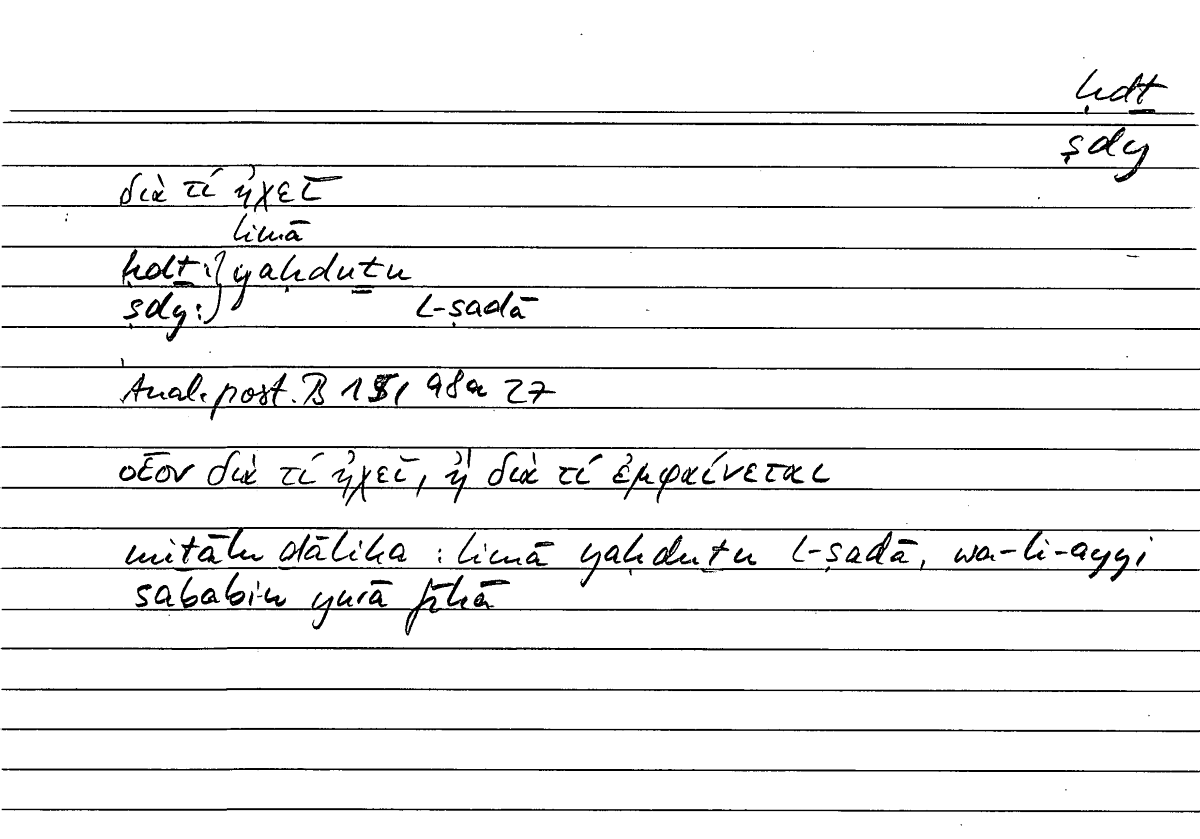 ḥdṯ
ṣdy
διὰ τί ἠχεῖ
limā
ḥdṯ:} yaḥduṯu
ṣdy:) l-ṣadā
Anal. post. B 15, 98a 27
οἷον διὰ τί ἠχεῖ, ἢ διὰ τί ἐμφαίνεται
miṯālu ḏālika : limā yaḥduṯu l-ṣadā, wa-li-ayyi
sababin yurā fīhā